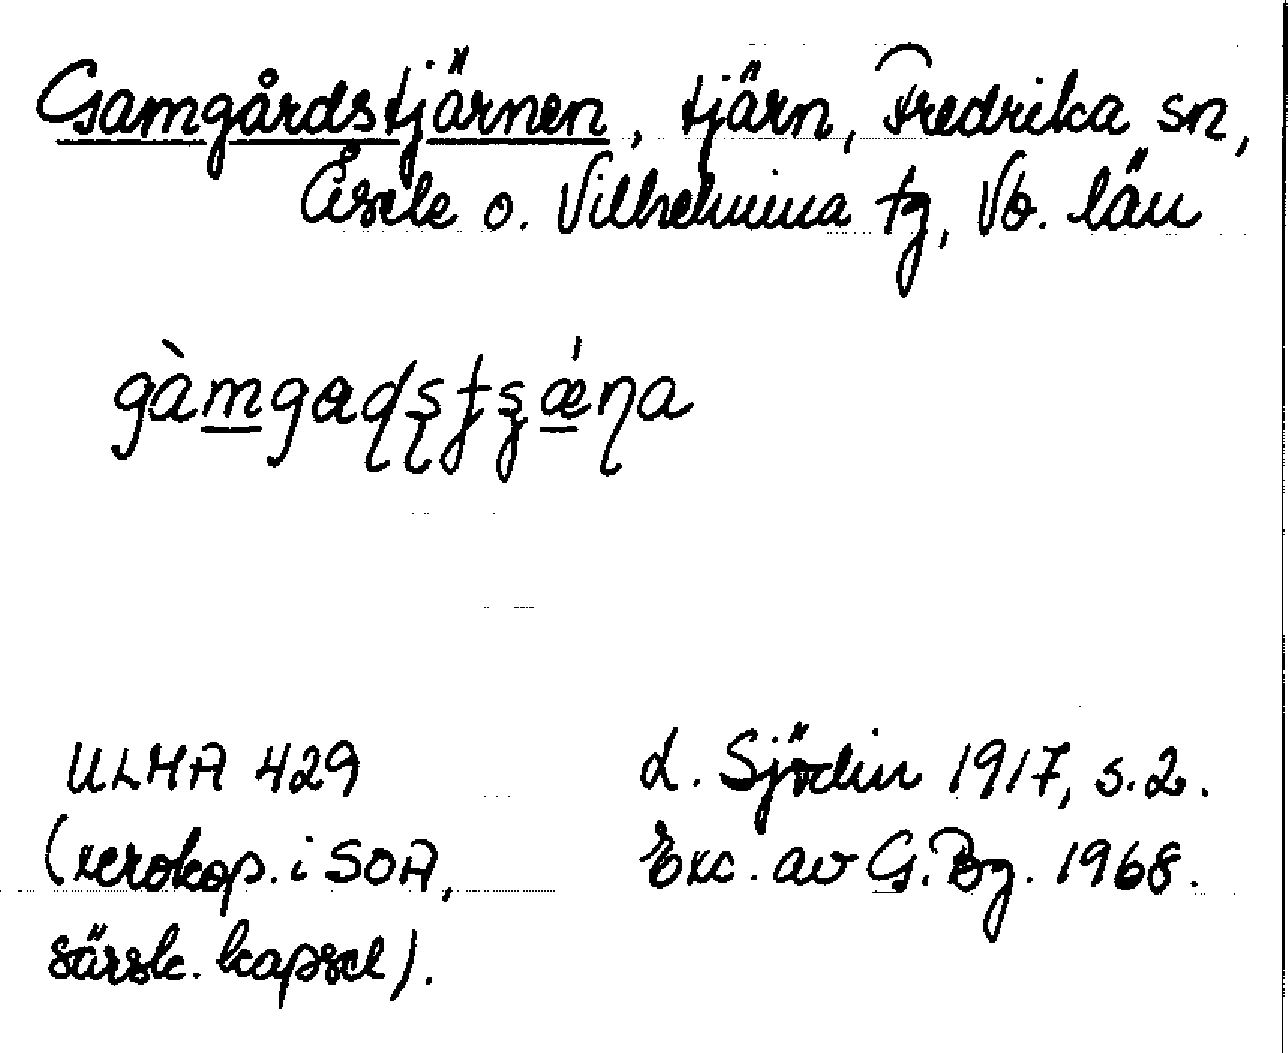 Gamgårdstjärnen, tjärn, Fredrika sn,
Åsele o. Vilhelmina tg, Vb. län
ULMA 429
L. Sjödin 1917, s. 2.
(xerokop. i SOA,
Exc. av G. Bg. 1968.
särsk. kapsel).